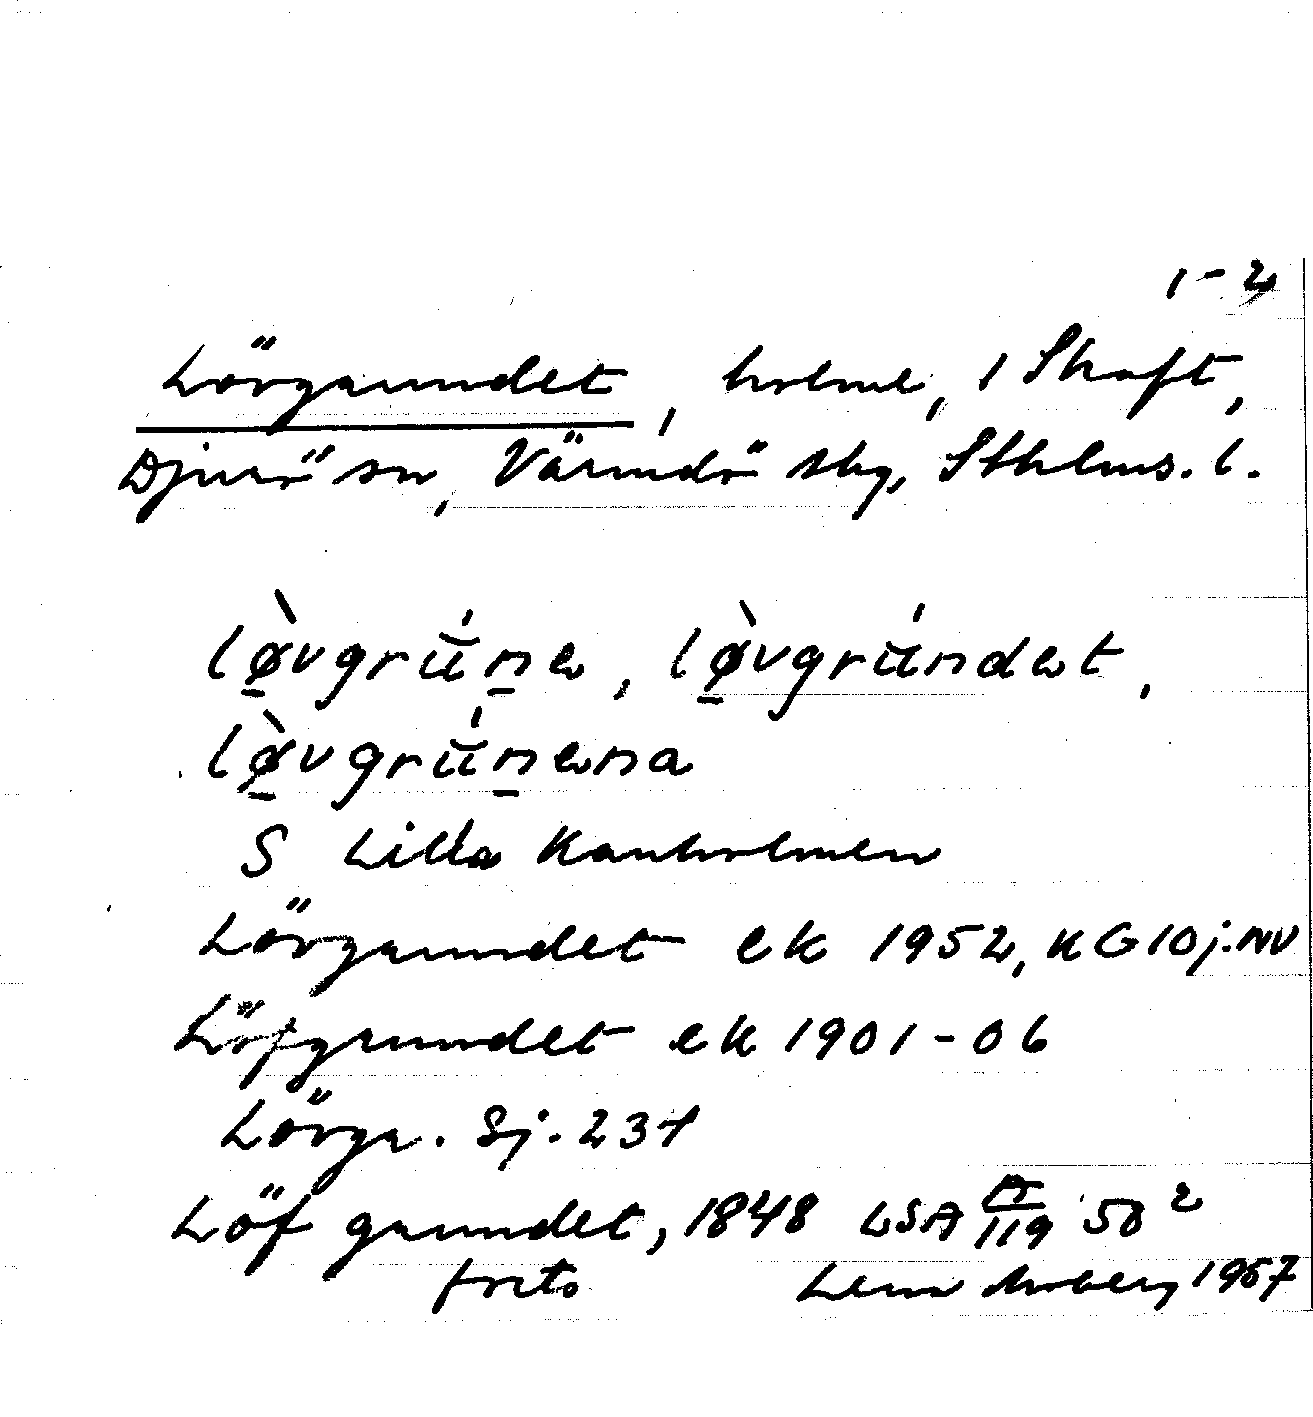 1-2
Lövgrundet, holme, 1 Skaft,
Djurö sn, Värmdö skg, Sthlms. l.
lø̀vgrúne, lø̀vgrúndet,
lø̀vgrúnena
S Lilla Kanholmen
Lövgrundet ek 1952, K G10j.NV
Löfgrundet ek 1901-06
Lövgr. Sj. 231
Löf grundet, 1848 LSA 119 50 2
frito Lena Moberg 1967